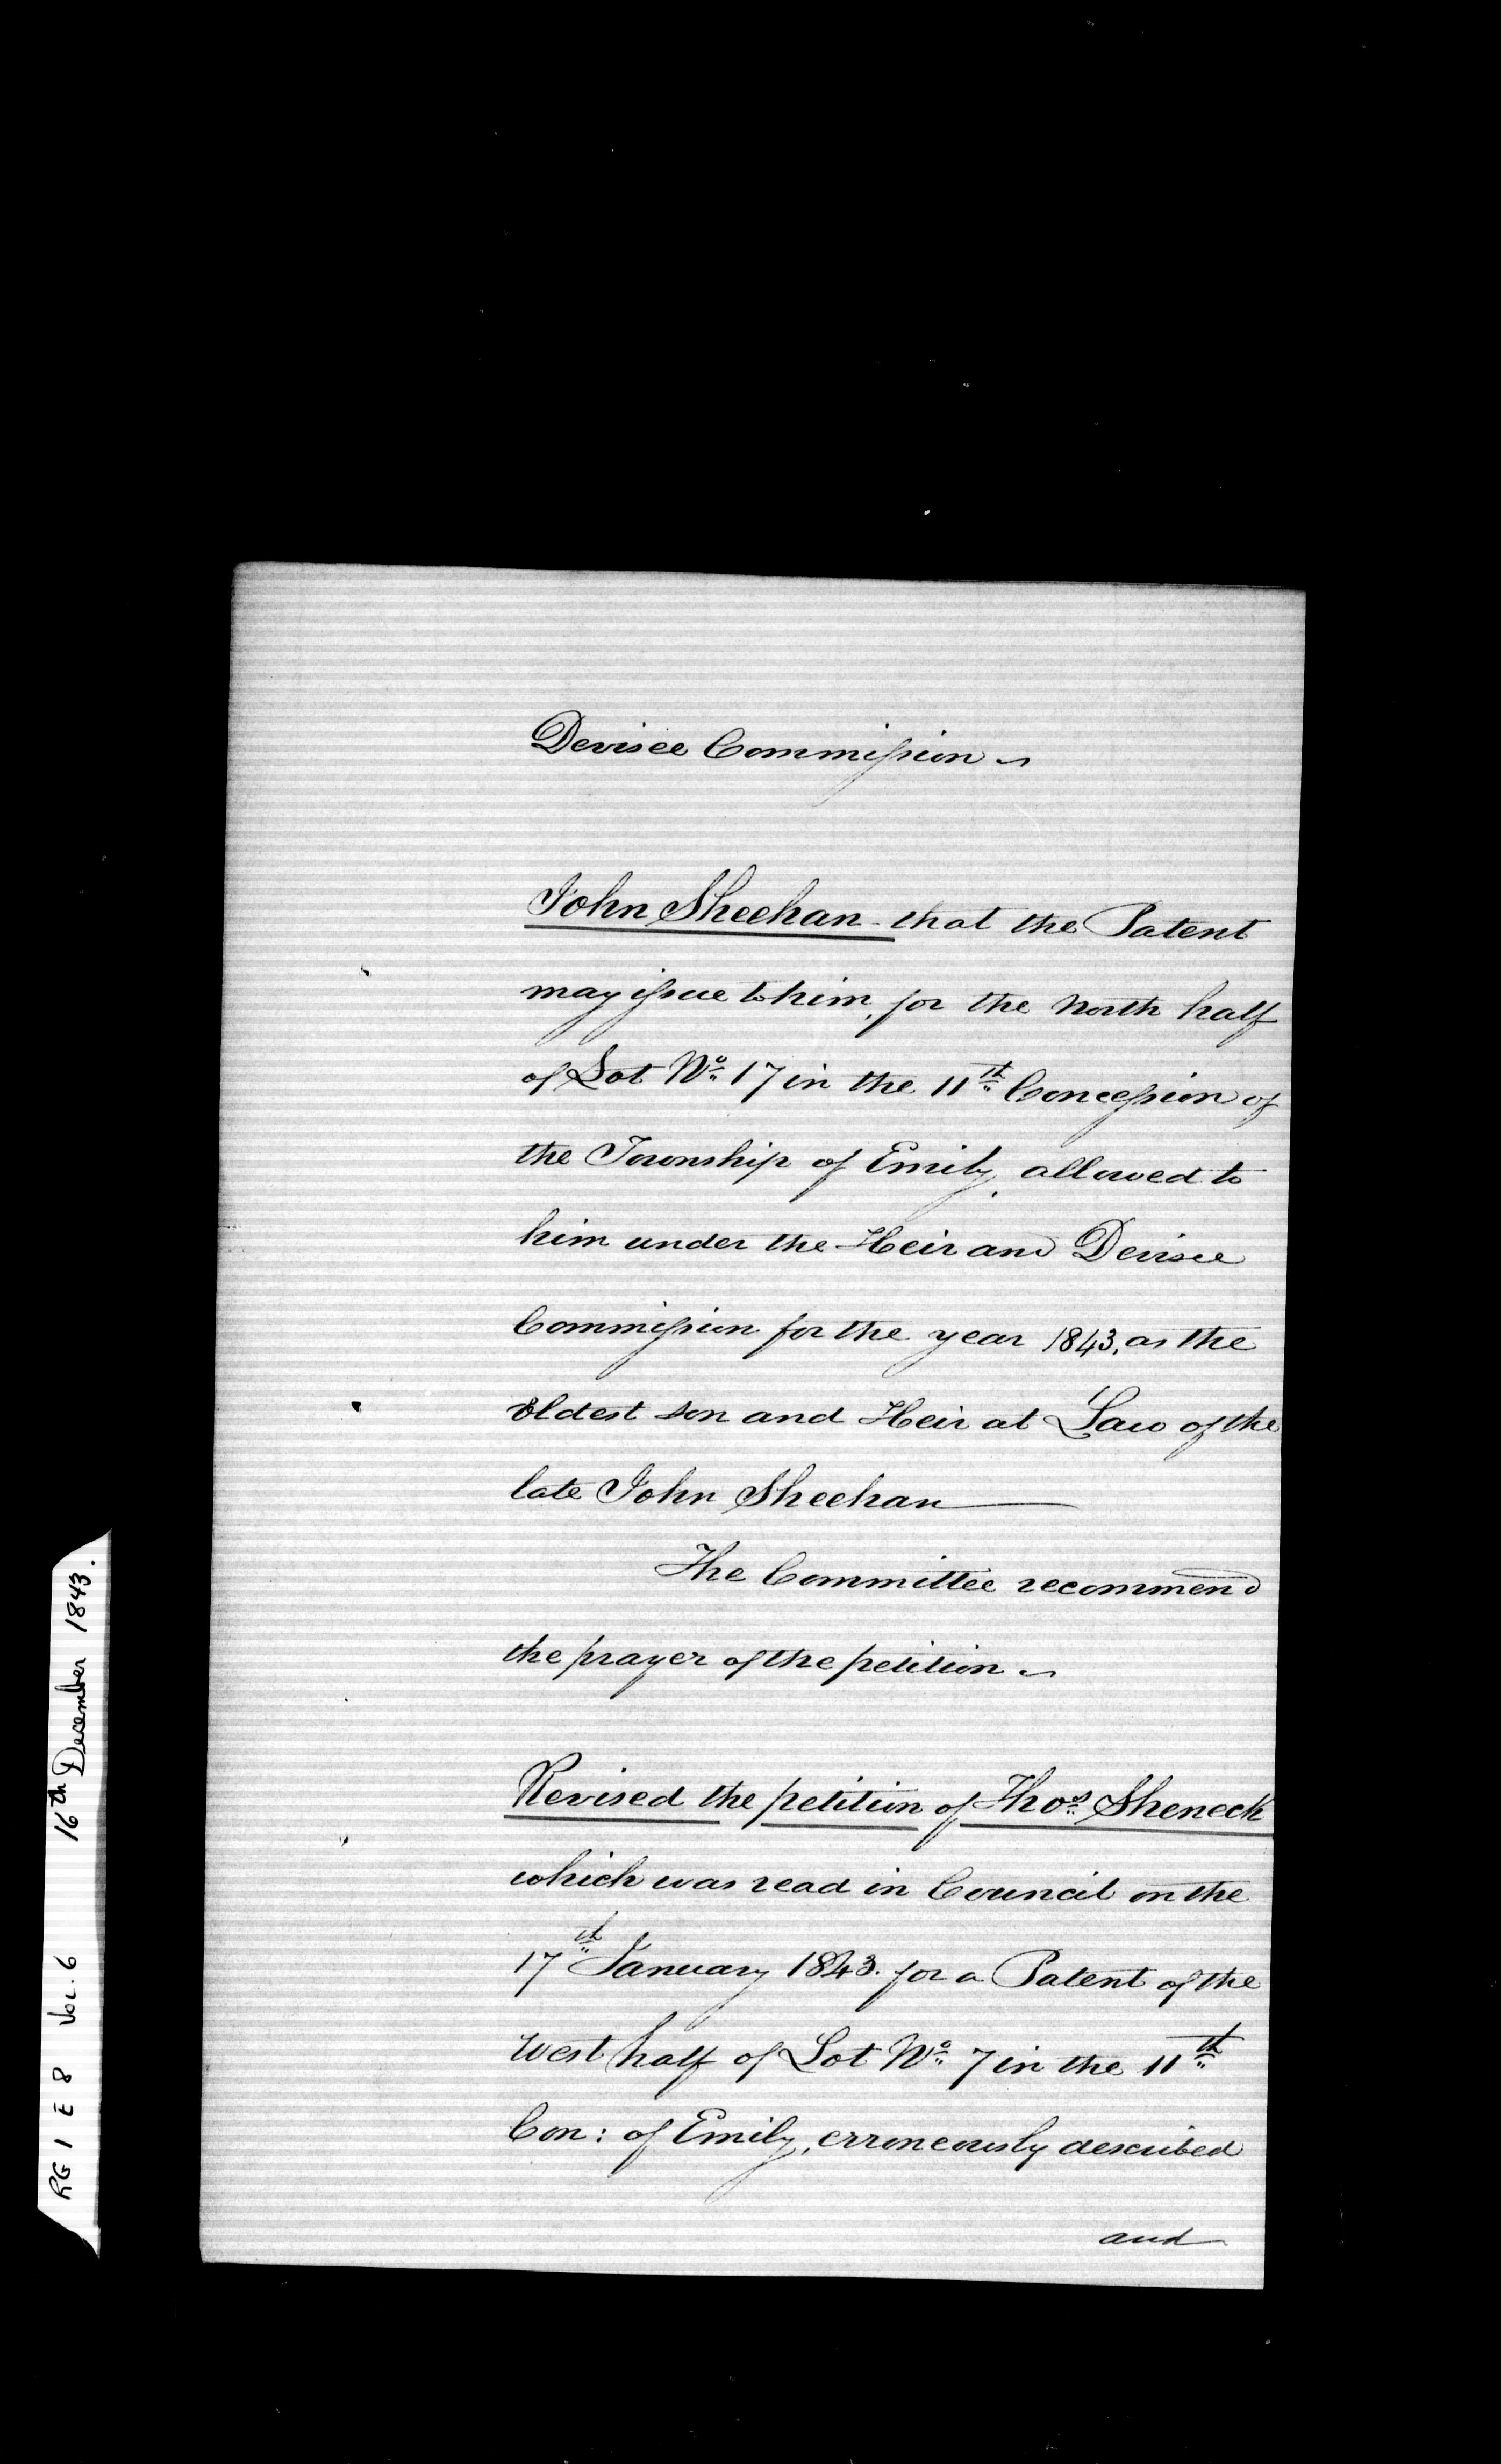 Devisee Commission
John Sheehan - that the Patent
may issue to him, for the North half
of Lot No. 17 in the 11th Concession of
the Township of Emily, allowed to
him under the Heir and Devisee
Commission for the year 1843, as the
Eldest son and Heir at Law of the
late John Sheehan
The Committee recommend
the prayer of the petition
Revised the petition of Thos. Sheneck
which was read in Council on the
17th January 1843. for a Patent of the
West half of Lot No. 7 in the 11th
Con: of Emily, erroneously described
and
RG 1 E 8 Vol. 6 16th December 1843.